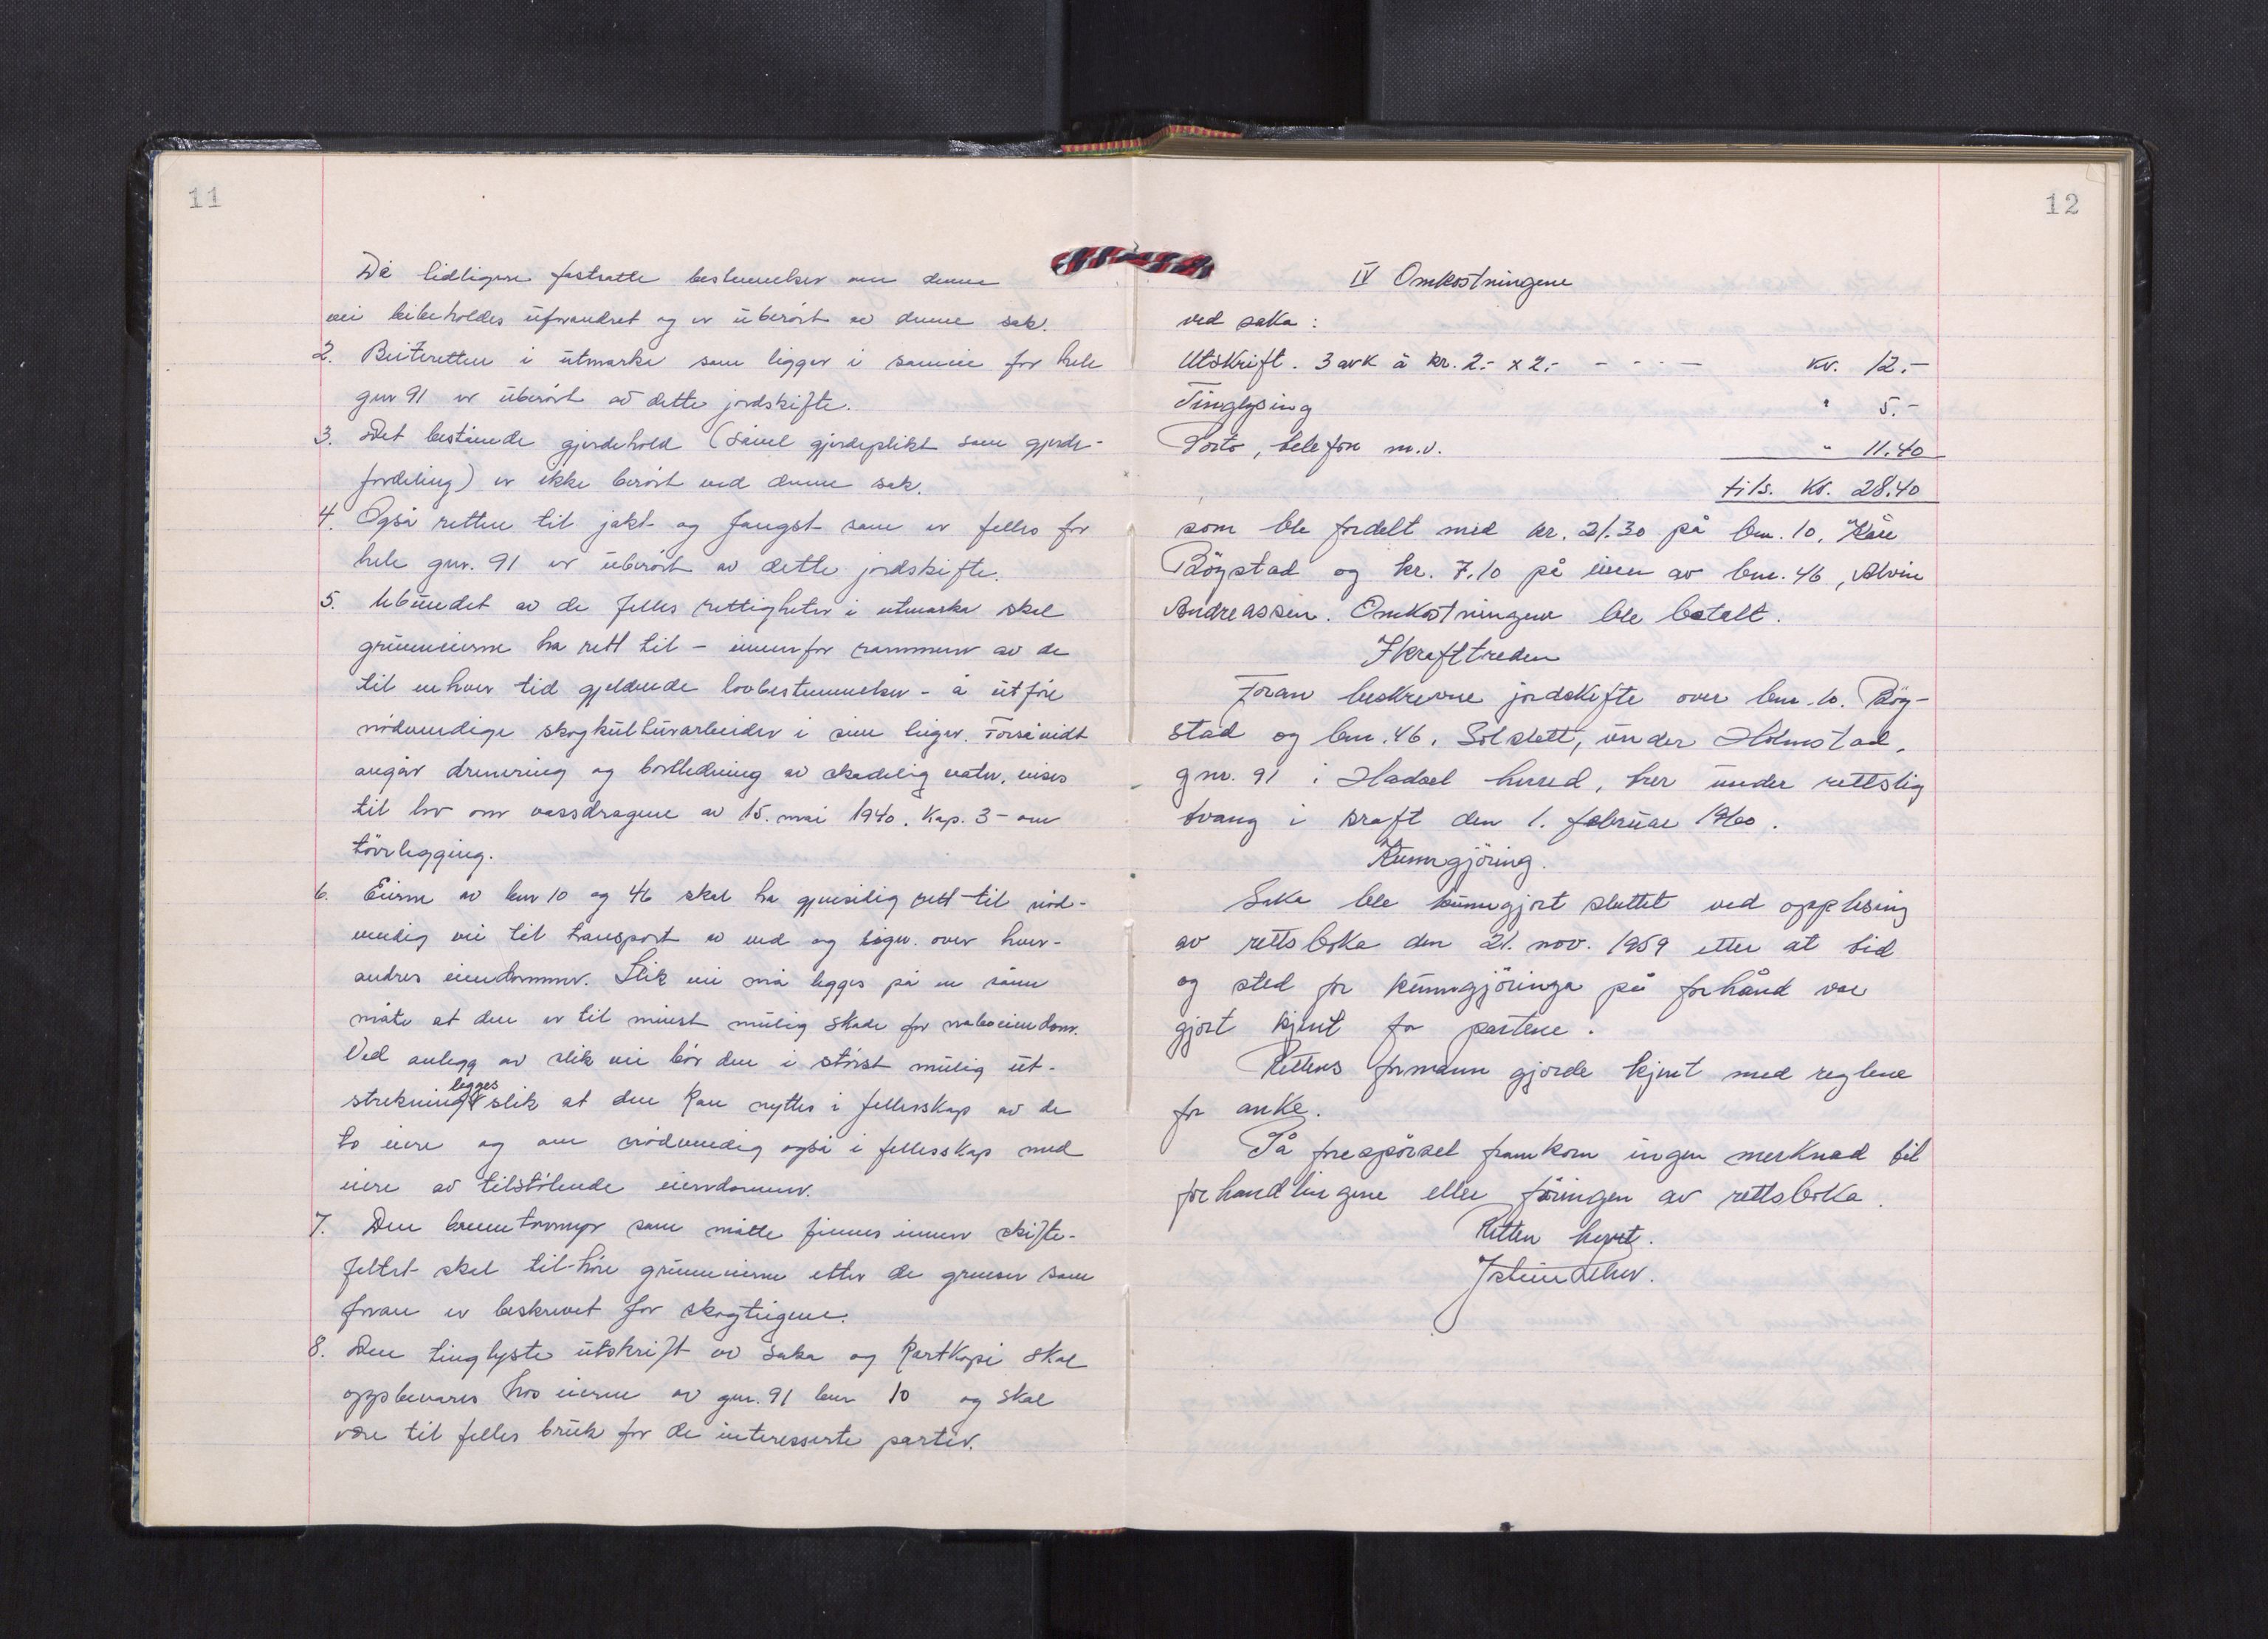 11
De tidligere fastsatte bestemmelser om denne
vei bibeholdes uforandret og er uberørt av denne sak.
2. Beiteretten i utmarka som ligger i sameie for hele
gnr 91 er uberørt av dette jordskifte.
3. Det bestående gjerdehold (såvel gjerdeplikt som gjerde-
fordeling) er ikke berørt ved denne sak.
4. Også retten til jakt og fangst som er felles for
hele gnr. 91 er uberørt av dette jordskifte.
5. Ubundet av de felles rettigheter i utmarka skal
grunneierne ha rett til - innenfor rammen av de
til enhver tid gjeldende lovbestemmelser - å utføre
nødvendige skogkulturarbeider i sine teiger. Forsåvidt
angår drenering og bortledning av skadelig vatn, vises
til lov om vassdragene av 15. mai 1940. Kap. 3 - om
tørrlegging.
6. Eierne av bnr 10 og 46 skal ha gjensidig rett til nød-
vendig vei til transport av ved og lign. over hver-
andres eiendommer. Slik vei må legges på en sånn
måte at den er til minst mulig skade for naboeiendom.
Ved anlegg av slik vei bør den i størst mulig ut-
strekning legges slik at den kan nyttes i fellesskap av de
to eiere og om nødvendig også i fellesskap med
eiere av tilstøtende eiendommer.
7. Den brenntorvmyr som måtte finnes innen skifte-
feltet skal tilhøre grunneierne etter de grenser som
foran er beskrevet for skogteigene.
8. Den tinglyste utskrift av saka og kartkopi skal
oppbevares hos eierne av gnr. 91 bnr 10 og skal
være til felles bruk for de interesserte parter.
12
IV Omkostningene
ved saka:
Utskrift. 3 ark à kr. 2.- x 2.- - - - - kr. 12.-
Tinglysing " 5.-
Porto, telefon m.v. " 11.40
tils. kr. 28.40
som ble fordelt med kr. 21.30 på bnr. 10, Kåre
Røgstad og kr. 7.10 på eieren av bnr. 46, Alvin
Andreassen. Omkostningene ble betalt.
Ikrafttreden
Foran beskrevne jordskifte over bnr. 10. Røg-
stad og bnr. 46. Solslett, under Holmstad,
gnr. 91 i Hadsel herred, trer under rettslig
tvang i kraft den 1. februar 1960.
Kunngjøring.
Saka ble kunngjort sluttet ved opplesing
av rettsboka den 21. nov. 1959 etter at tid
og sted for kunngjøringa på forhånd var
gjort kjent for partene.
Rettens formann gjorde kjent med reglene
for anke.
På forespørsel framkom ingen merknad til
forhandlingene eller føringen av rettsboka.
Retten hevet.